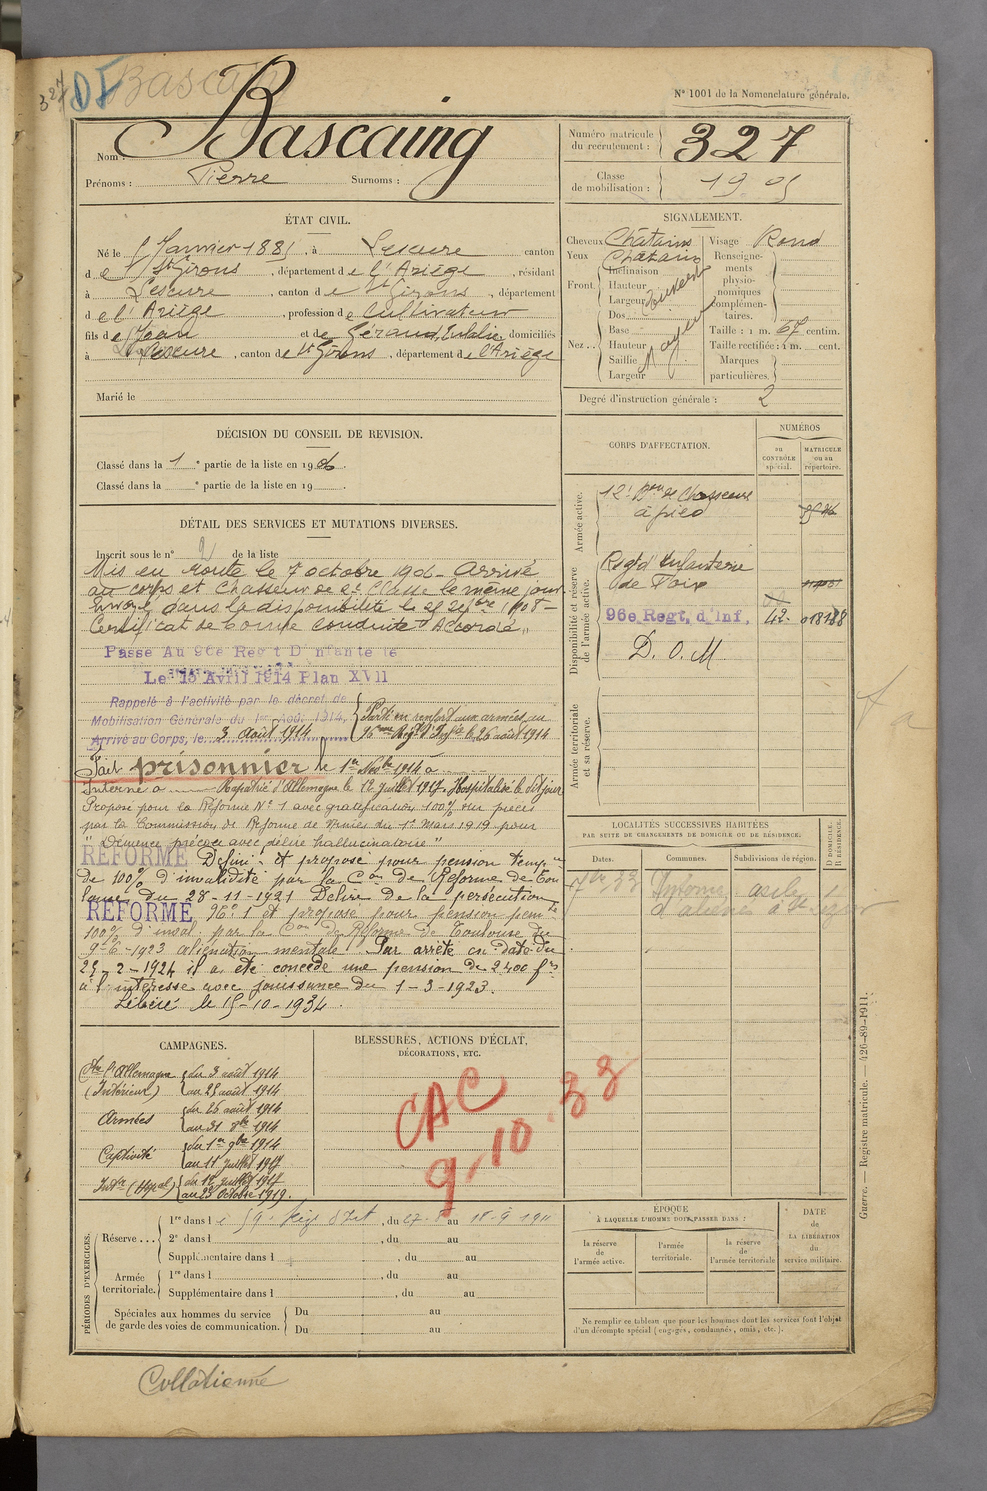 327 DF Bascain
N° 1001 de la Nomenclature générale.
Nom : Bascaing
Prénoms : Pierre Surnoms :
Numéro matricule du recrutement : 327
Classe de mobilisation : 1905
ÉTAT CIVIL.
Né le 5 Janvier 1885, à Lescure canton
de St Girons, département de l'Ariège, résidant
à Lescure, canton de St Girons, département
de l'Ariège, profession de Cultivateur
fils de Jean et de Géraud, Eulalie, domiciliés
à Lescure, canton de St Girons, département de l'Ariège
Marié le
SIGNALEMENT.
Cheveux Châtains Visage Rond
Yeux Châtains
Front Inclinaison
Hauteur
Largeur
Nez Dos
Base Moyen
Hauteur
Saillie
Largeur
Renseignements physionomiques complémentaires.
Taille : 1 m. 67 centim.
Taille rectifiée : 1 m. cent.
Marques particulières.
Degré d'instruction générale : 2
DÉCISION DU CONSEIL DE REVISION.
Classé dans la 1e partie de la liste en 1906.
Classé dans la e partie de la liste en 19 .
CORPS D'AFFECTATION.
NUMÉROS
au CONTRÔLE spécial.
MATRICULE ou au répertoire.
Armée active.
12e Bon de Chasseurs
à pied
Disponibilité et réserve de l'armée active.
Regt d'Infanterie
de Foix
96e Regt, d'Inf. 42 018188
D. O. M
Armée territoriale et sa réserve.
DÉTAIL DES SERVICES ET MUTATIONS DIVERSES.
Inscrit sous le n° 2 de la liste
Mis en route le 7 octobre 1906. Arrivé
au corps et Chasseur de 2e Classe le même jour
Envoyé dans la disponibilité le 25 7bre 1908 –
Certificat de bonne conduite "Accordé"
Passé Au 96e Reg t D nfante ie
Le 15 Avril 1914 Plan XVII
Rappelé à l'activité par le décret de
Mobilisation Générale du 1er Aoû. 1914,
Arrivé au Corps, le 3 Août 1914
Parti en renfort aux armées au
96eme Regt d'Infie le 26 août 1914
Fait prisonnier le 1er Novbre 1914 à
Interné à Rapatrié d'Allemagne le 12 juillet 1917. Hospitalisé le dit jour
Proposé pour la Réforme N° 1 avec gratification 100% sur pièces
par la Commission de Réforme de Nimes du 1er Mars 1919 pour
"Démence précoce avec délire hallucinatoire"
RÉFORMÉ Définif et proposé pour pension tempre
de 100% d'invalidité par la Con de Réforme de Tou
louse du 28-11-1921 Délire de la persécution
RÉFORMÉ N° 1 et proposé pour pension permte
100% d'inval. par la Con de Réforme de Toulouse du
9-6-1923 aliénation mentale. Par arrêté en date du
25-2-1924 il a été concédé une pension de 2400 frs
à l'intéressé avec jouissance du 1-3-1923.
Libéré le 15-10-1934.
LOCALITÉS SUCCESSIVES HABITÉES
PAR SUITE DE CHANGEMENTS DE DOMICILE OU DE RÉSIDENCE.
Dates. Communes. Subdivisions de région. D. DOMICILE. R. RÉSIDENCE.
Interné asile
d'aliénés à St
CAMPAGNES.
Ctre l'Allemagne du 3 août 1914
(Intérieur) au 25 août 1914
Armées du 26 août 1914
au 31 8bre 1914
Captivité du 1er 9bre 1914
au 11 juillet 1917
Intr (Hopal) du 12 juillet 1917
au 23 octobre 1919.
BLESSURES, ACTIONS D'ÉCLAT,
DÉCORATIONS, ETC.
CAC
9-10-33
PÉRIODES D'EXERCICES.
Réserve 1re dans le 59e Régt d'Inf, du 27-8 au 18-9 1911
2e dans l , du au
Supplémentaire dans l , du au
Armée territoriale. 1re dans l , du au
Supplémentaire dans l , du au
Spéciales aux hommes du service de garde des voies de communication. Du au
Du au
ÉPOQUE
À LAQUELLE L'HOMME DOIT PASSER DANS :
la réserve de l'armée active.
l'armée territoriale.
la réserve de l'armée territoriale
DATE de LA LIBÉRATION du service militaire.
Ne remplir ce tableau que pour les hommes dont les services font l'objet
d'un décompte spécial (engagés, condamnés, omis, etc.).
Guerre. — Registre matricule. — 426-89-1911.
Collationné